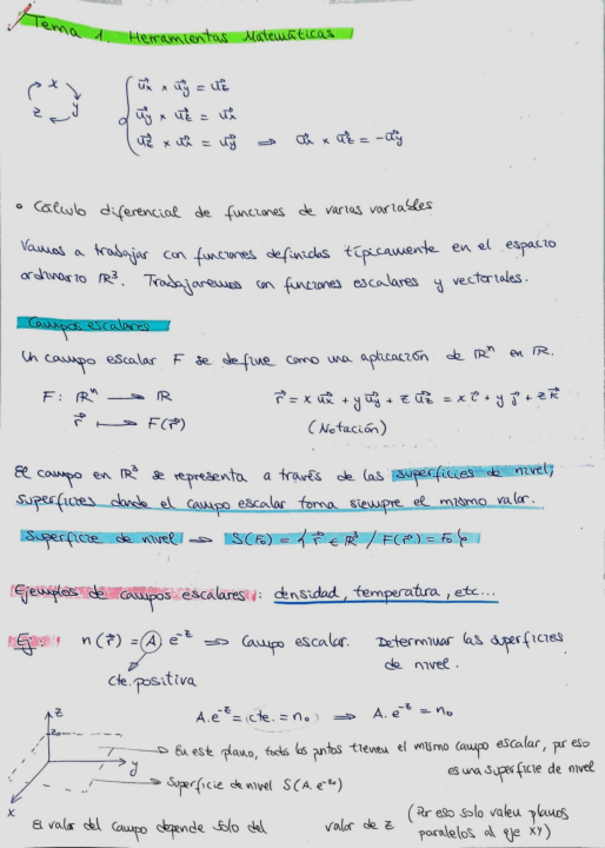 Tema 1. Herramientas Matemáticas
x
y
z
u⃗x × u⃗y = u⃗z
u⃗y × u⃗z = u⃗x
u⃗z × u⃗x = u⃗y ⇒ u⃗x × u⃗z = -u⃗y
• Cálculo diferencial de funciones de varias variables
Vamos a trabajar con funciones definidas típicamente en el espacio
ordinario ℝ³. Trabajaremos con funciones escalares y vectoriales.
Campos escalares
Un campo escalar F se define como una aplicación de ℝⁿ en ℝ.
F: ℝⁿ → ℝ r⃗ = x u⃗x + y u⃗y + z u⃗z = x i⃗ + y j⃗ + z k⃗
r⃗ ↦ F(r⃗) (Notación)
El campo en ℝ³ se representa a través de las superficies de nivel,
superficies donde el campo escalar toma siempre el mismo valor.
Superficie de nivel → S(F₀) = { r⃗ ∈ ℝ³ / F(r⃗) = F₀ }
Ejemplos de campos escalares: densidad, temperatura, etc...
Ej: n(r⃗) = A e⁻ᶻ ⇒ Campo escalar. Determinar las superficies
de nivel.
Cte. positiva
A.e⁻ᶻ = (cte. = n₀) ⇒ A.e⁻ᶻ = n₀
z
z₀
y
x
En este plano, todos los puntos tienen el mismo campo escalar, por eso
es una superficie de nivel
Superficie de nivel S(A.e^-z₀)
El valor del campo depende solo del valor de z (Por eso solo valen planos
paralelos al eje XY)